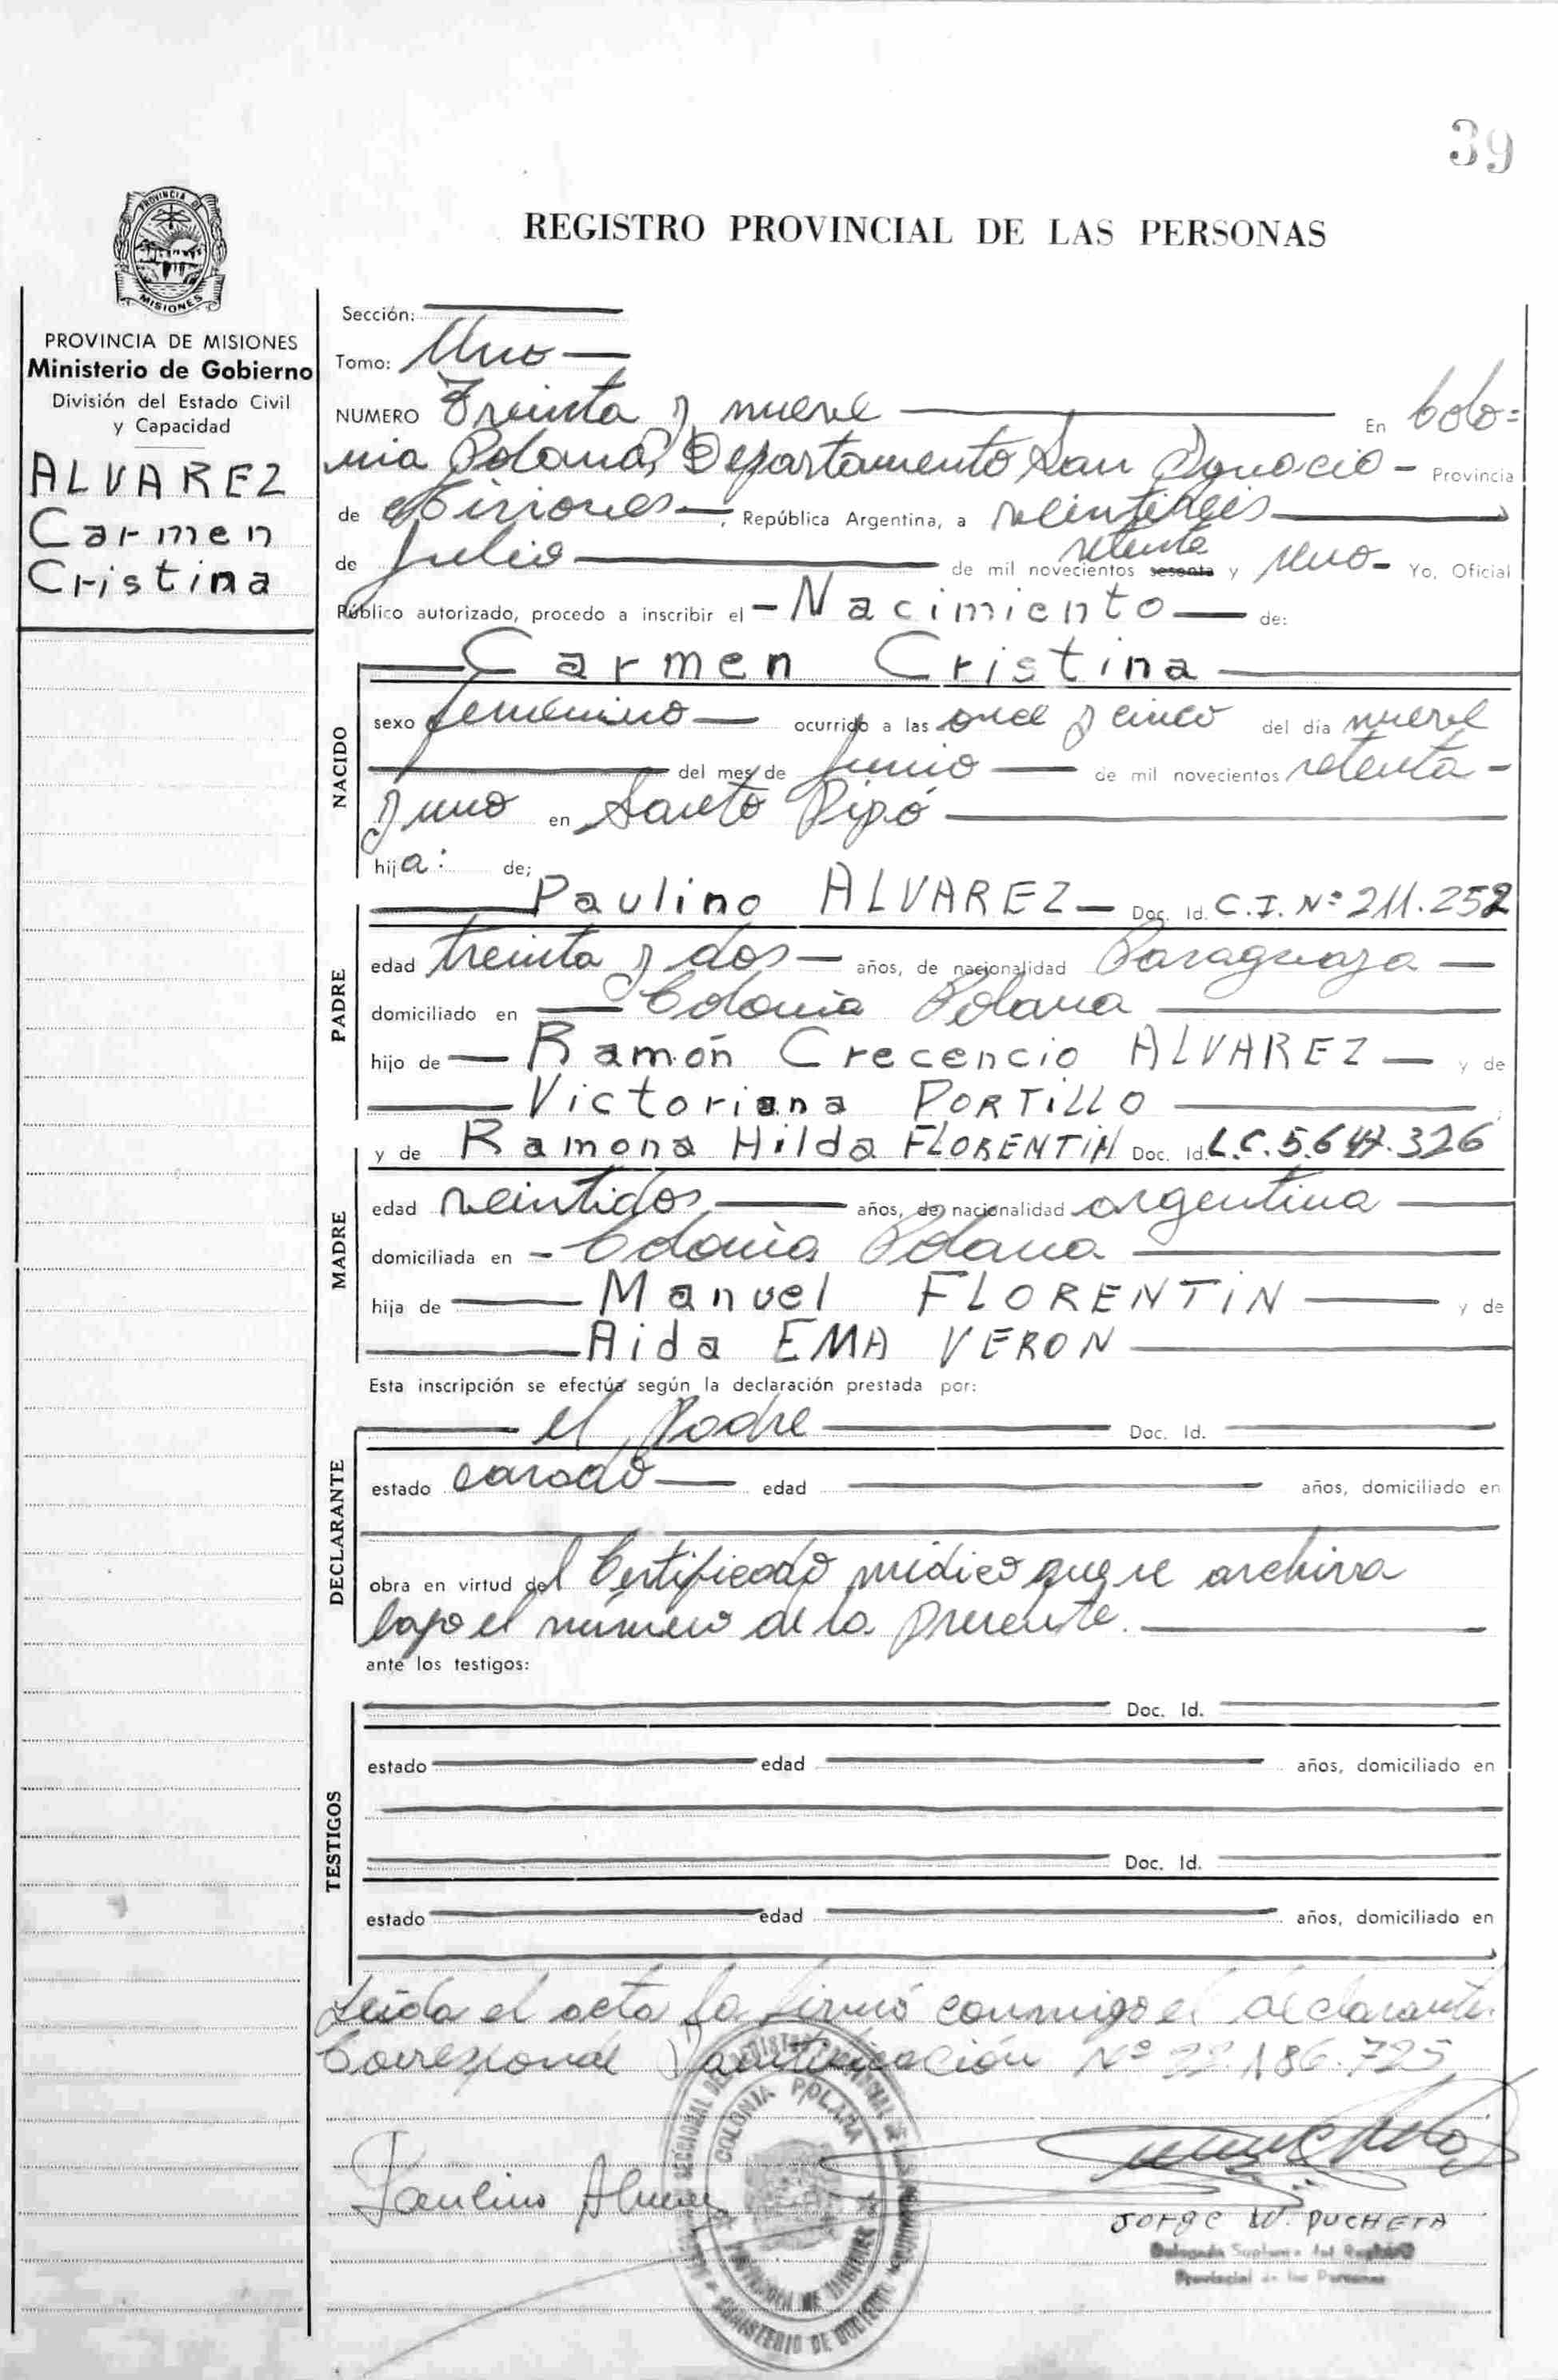 39
REGISTRO PROVINCIAL DE LAS PERSONAS
PROVINCIA DE
MISIONES
PROVINCIA DE MISIONES
Ministerio de Gobierno
División del Estado Civil
y Capacidad
ALVAREZ
Carmen
Cristina
Sección:
Tomo: Uno
NUMERO Treinta y nueve En Colo=
nia Polana, Departamento San Ignacio - Provincia
de Misiones, República Argentina, a veintiseis
setenta
de Julio de mil novecientos sesenta y uno- Yo, Oficial
Público autorizado, procedo a inscribir el - Nacimiento de:
Carmen Cristina
NACIDO
sexo femenino ocurrido a las once y cinco del día nueve
del mes de Junio de mil novecientos setenta-
y uno en Santo Pipó
hija: de;
Paulino ALVAREZ- Doc. Id. C.I. Nº 211.252
PADRE
edad treinta y dos- años, de nacionalidad Paraguaya
domiciliado en Colonia Polana
hijo de Ramón Crecencio ALVAREZ y de
Victoriana PORTiLLO
y de Ramona Hilda FLORENTiN Doc. Id. L.C.
MADRE
edad veintidos años, de nacionalidad argentina
domiciliada en - Colonia Polana
hija de Manuel FLORENTiN y de
Aida EMA VERON
Esta inscripción se efectúa según la declaración prestada por:
el Padre Doc. Id.
DECLARANTE
estado casado edad años, domiciliado en
obra en virtud del Certificado médico que se archiva
bajo el número de la presente.
ante los testigos:
TESTIGOS
Doc. Id.
estado edad años, domiciliado en
Doc. Id.
estado edad años, domiciliado en
Leida el acta la firmó conmigo el declarante.
Corresponde Identificación Nº 22.186.725
COLONIA POLANA
MINISTERIO DE GOBIERNO
Paulino Alvarez
JORGE W. PUCHETA
Delegado Suplente del Registro
Provincial de las Personas